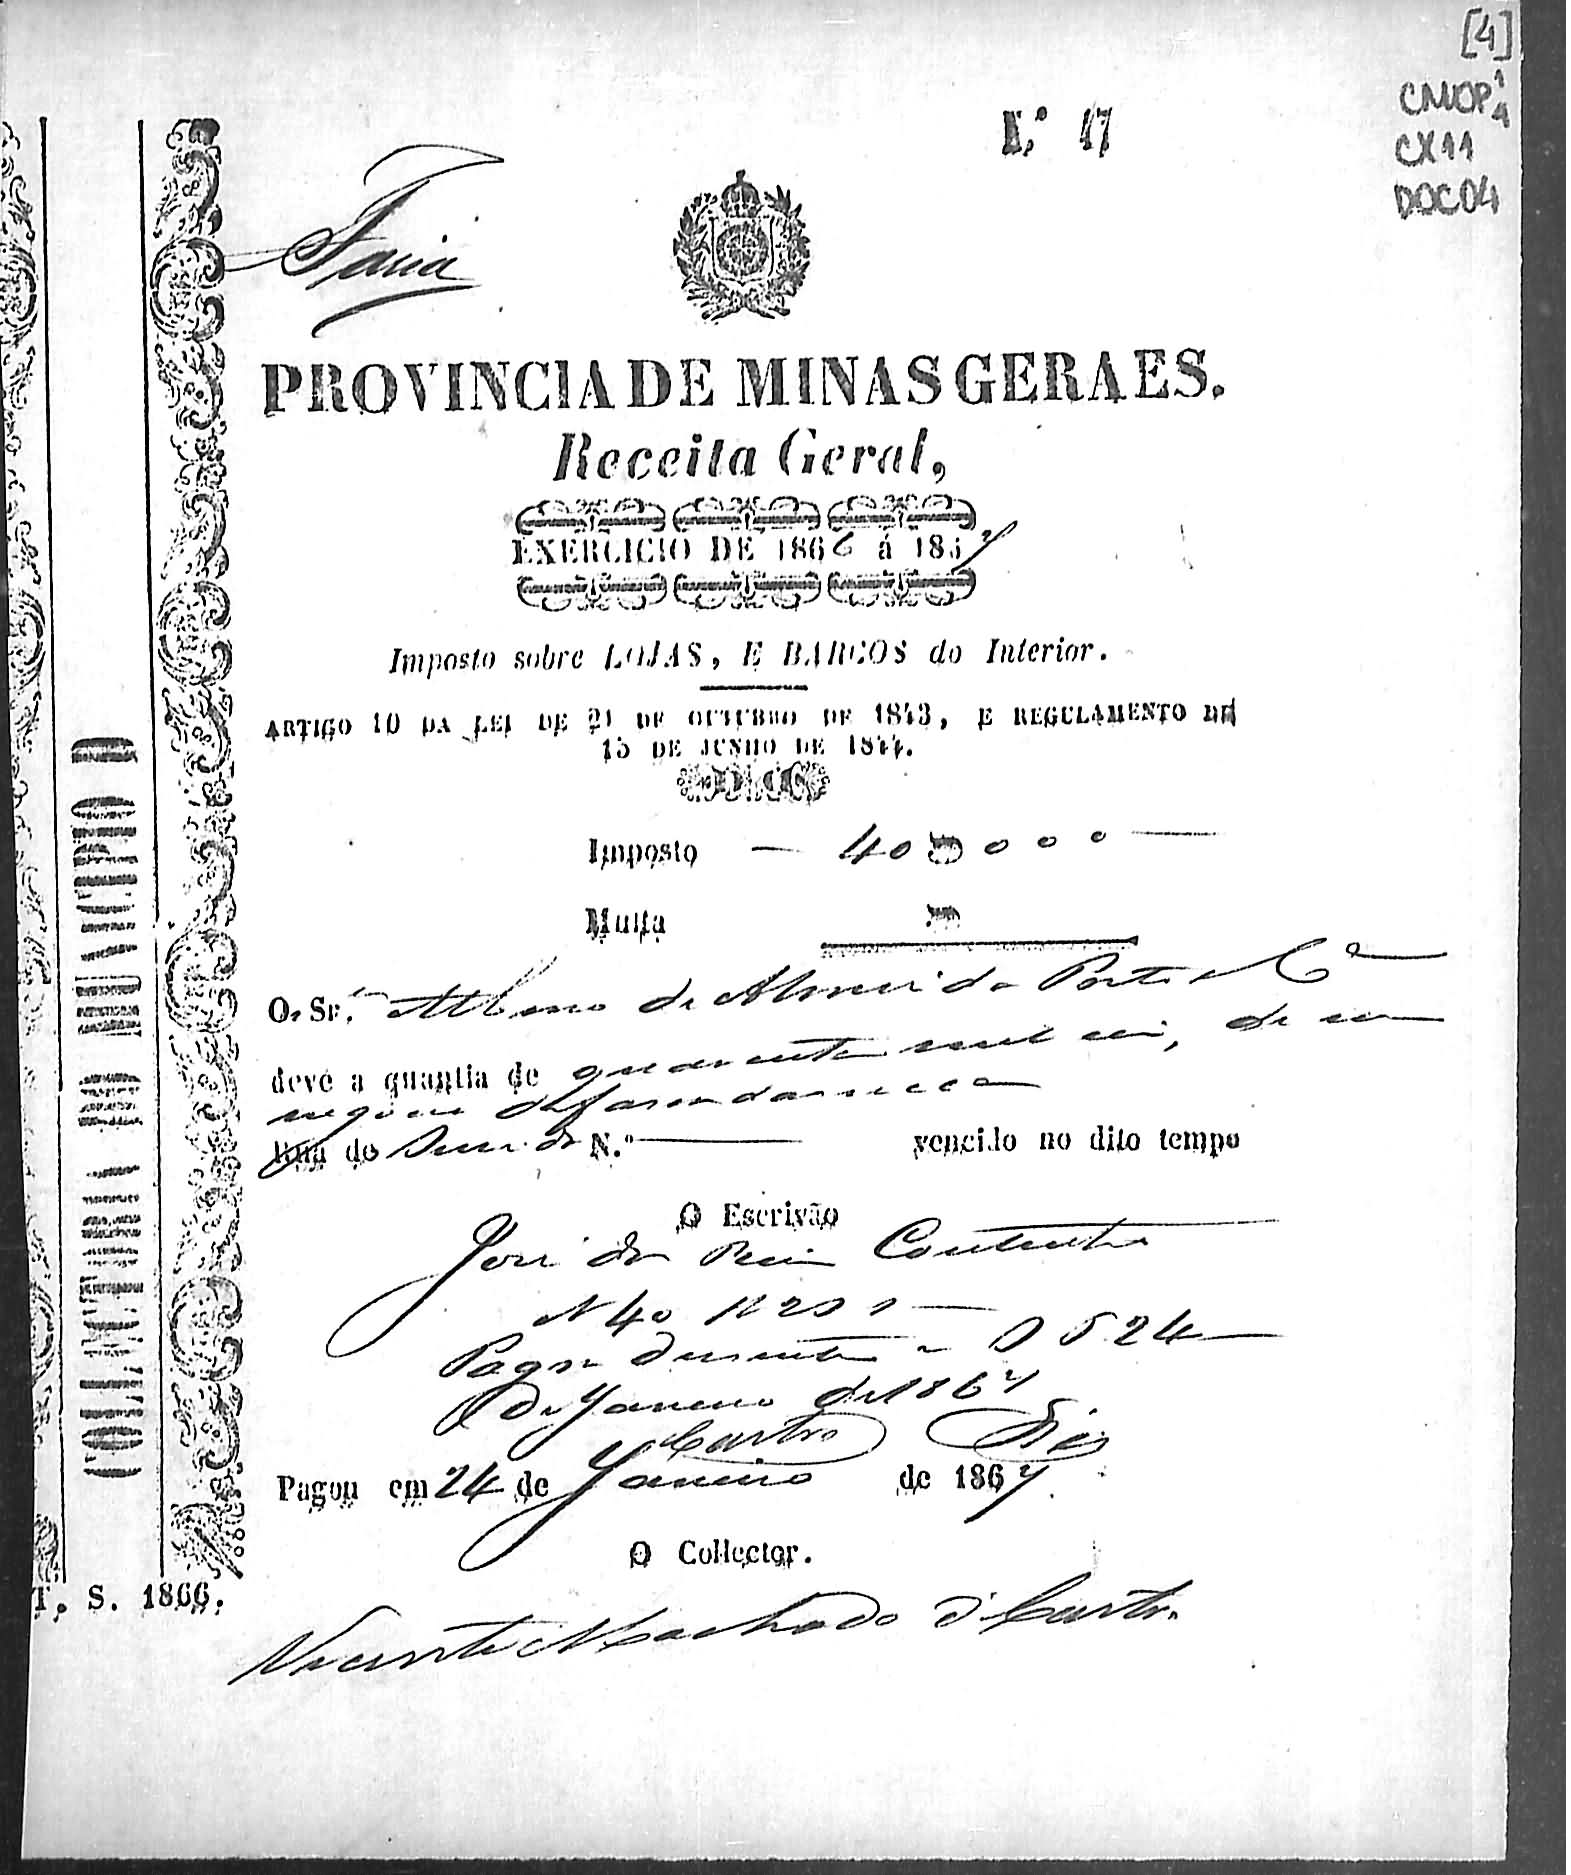 [4]
CMOP
CX11
DOC04
N.º 47
Faria
PROVINCIA DE MINAS GERAES.
Receita Geral,
EXERCICIO DE 1866 á 1867
Imposto sobre LOJAS, E BARCOS do Interior.
ARTIGO 10 DA LEI DE 21 DE OUTUBRO DE 1843, E REGULAMENTO DE
15 DE JUNHO DE 1844.
Imposto — 40$000 —
Multa $
O Sr. Albino de Almeida Porto & Cª
deve a quantia de quarenta mil reis, de seu
negocio de fasenda secca
Rua do N.º — vencido no dito tempo
O Escrivão
José dos Reis Coutinho
N 40 R 200
Pagou duzentos rs O P 24
de Janeiro de 1867
Castro Dias
Pagou em 24 de Janeiro de 1867
O Collector.
Vicente Machado d' Castro
COLLECTORIA DO MUNICIPIO D
T. S. 1866.